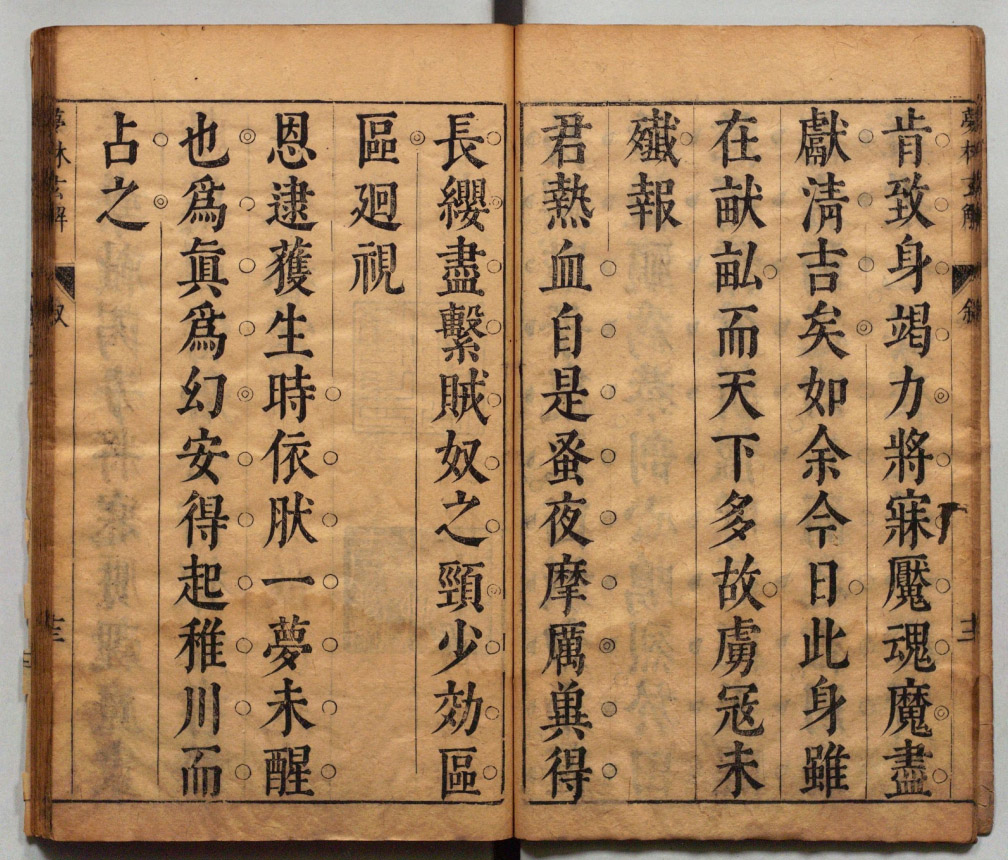 肯致身竭力將寐魘魂魔盡
獻清吉矣如余今日此身雖
在畎畒而天下多故虜冦未
殲報
君熱血自是蚤夜摩厲兾得
長纓盡繫賊奴之頸少効區
區廻視
恩逮獲生時依肰一夢未醒
也爲眞爲幻安得起稚川而
占之
夢林玄解
敘
十三